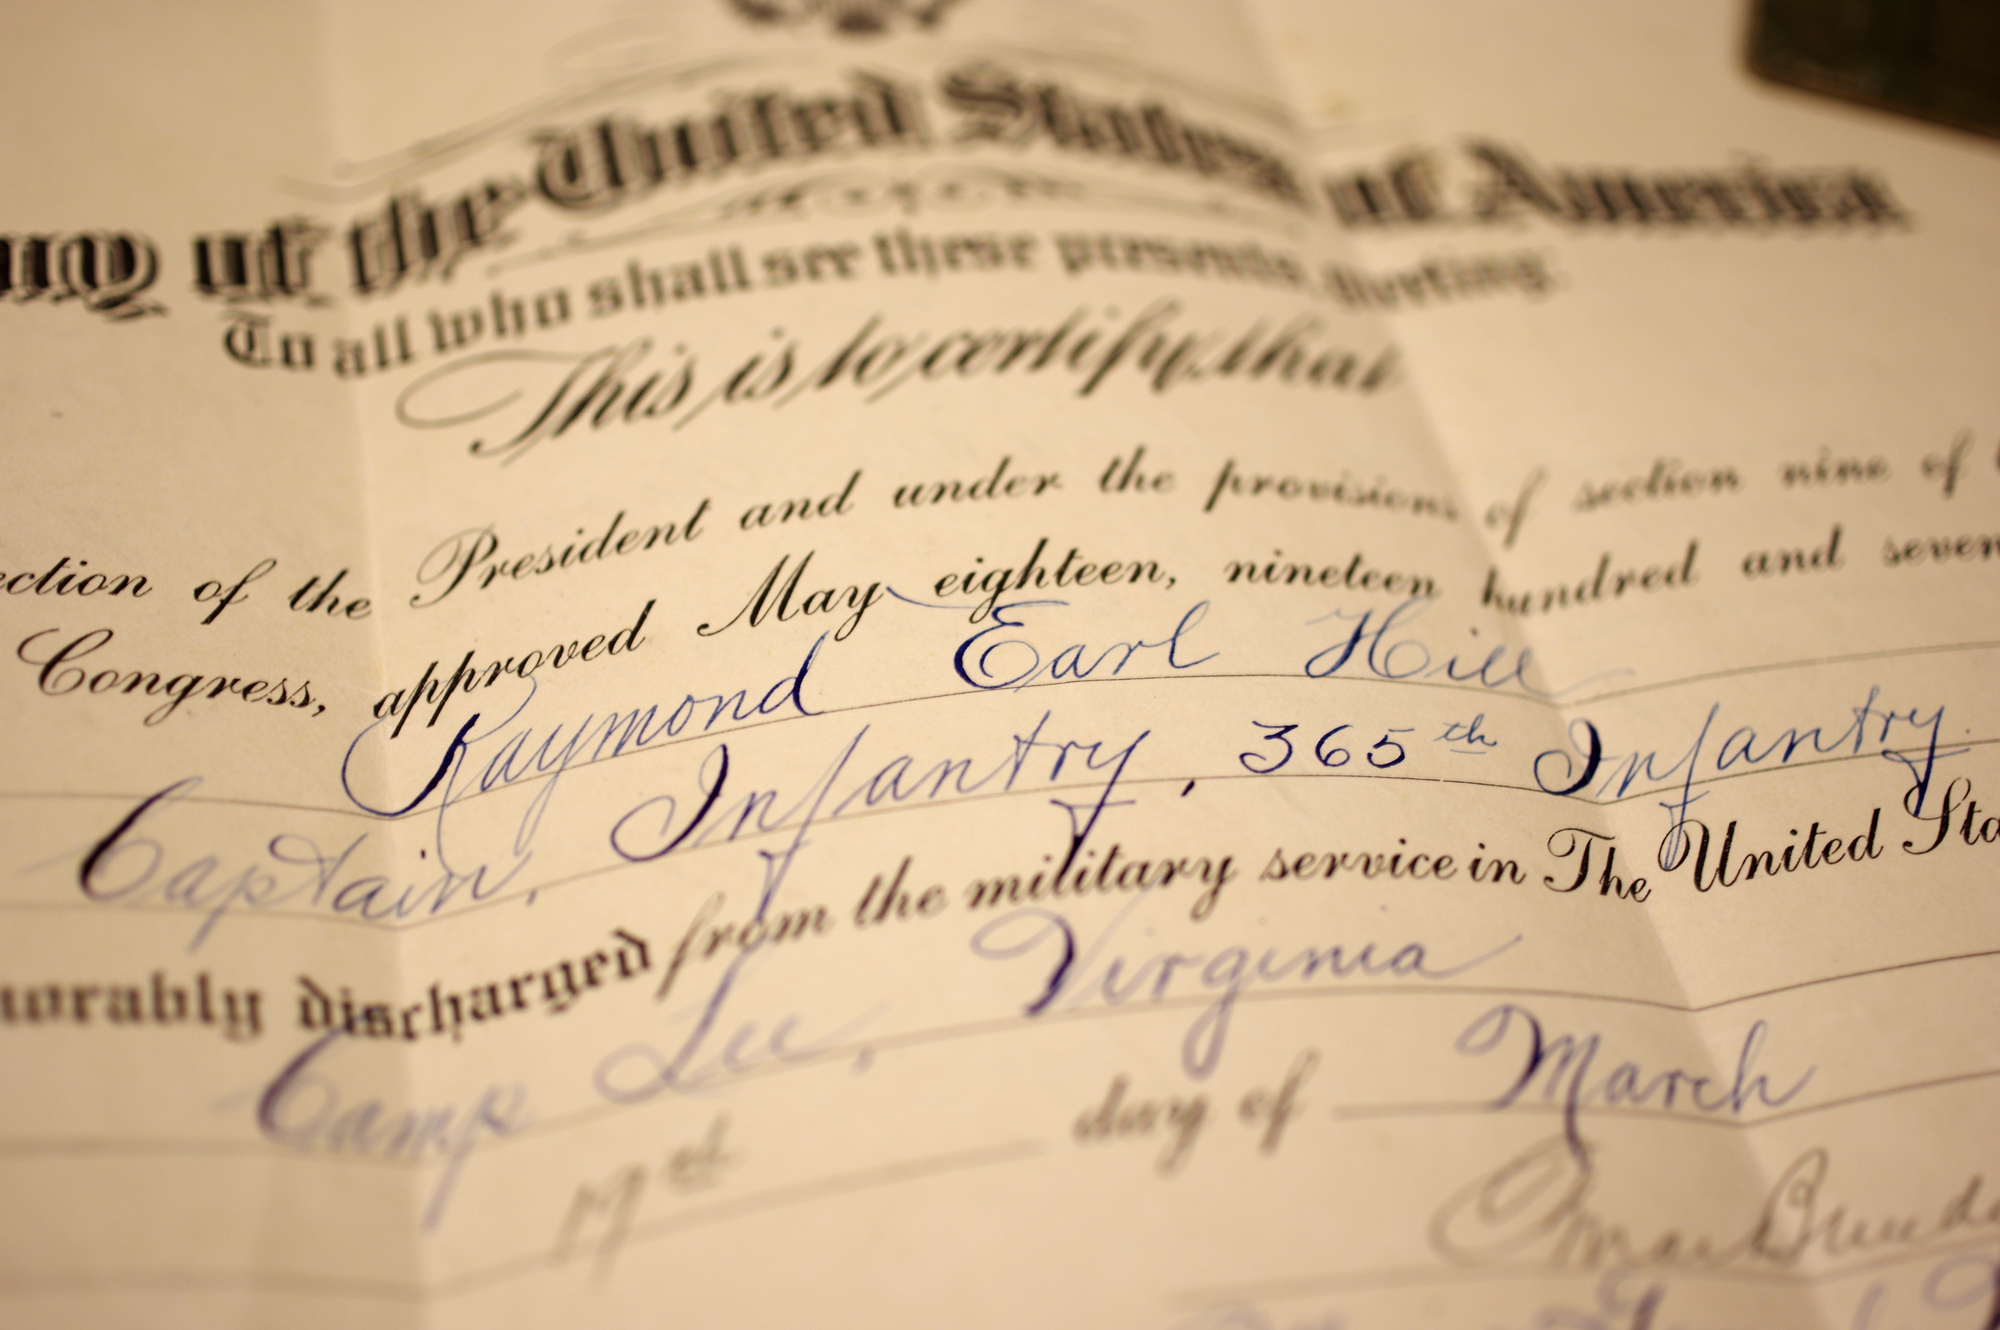 my of the United States of America
To all who shall see these presents, Greeting:
This is to certify, that
ection of the President and under the provisions of section nine of
Congress, approved May eighteen, nineteen hundred and seven
Raymond Earl Hill
Captain, Infantry, 365th Infantry.
norably discharged from the military service in The United Sta
Camp Lee, Virginia
day of March